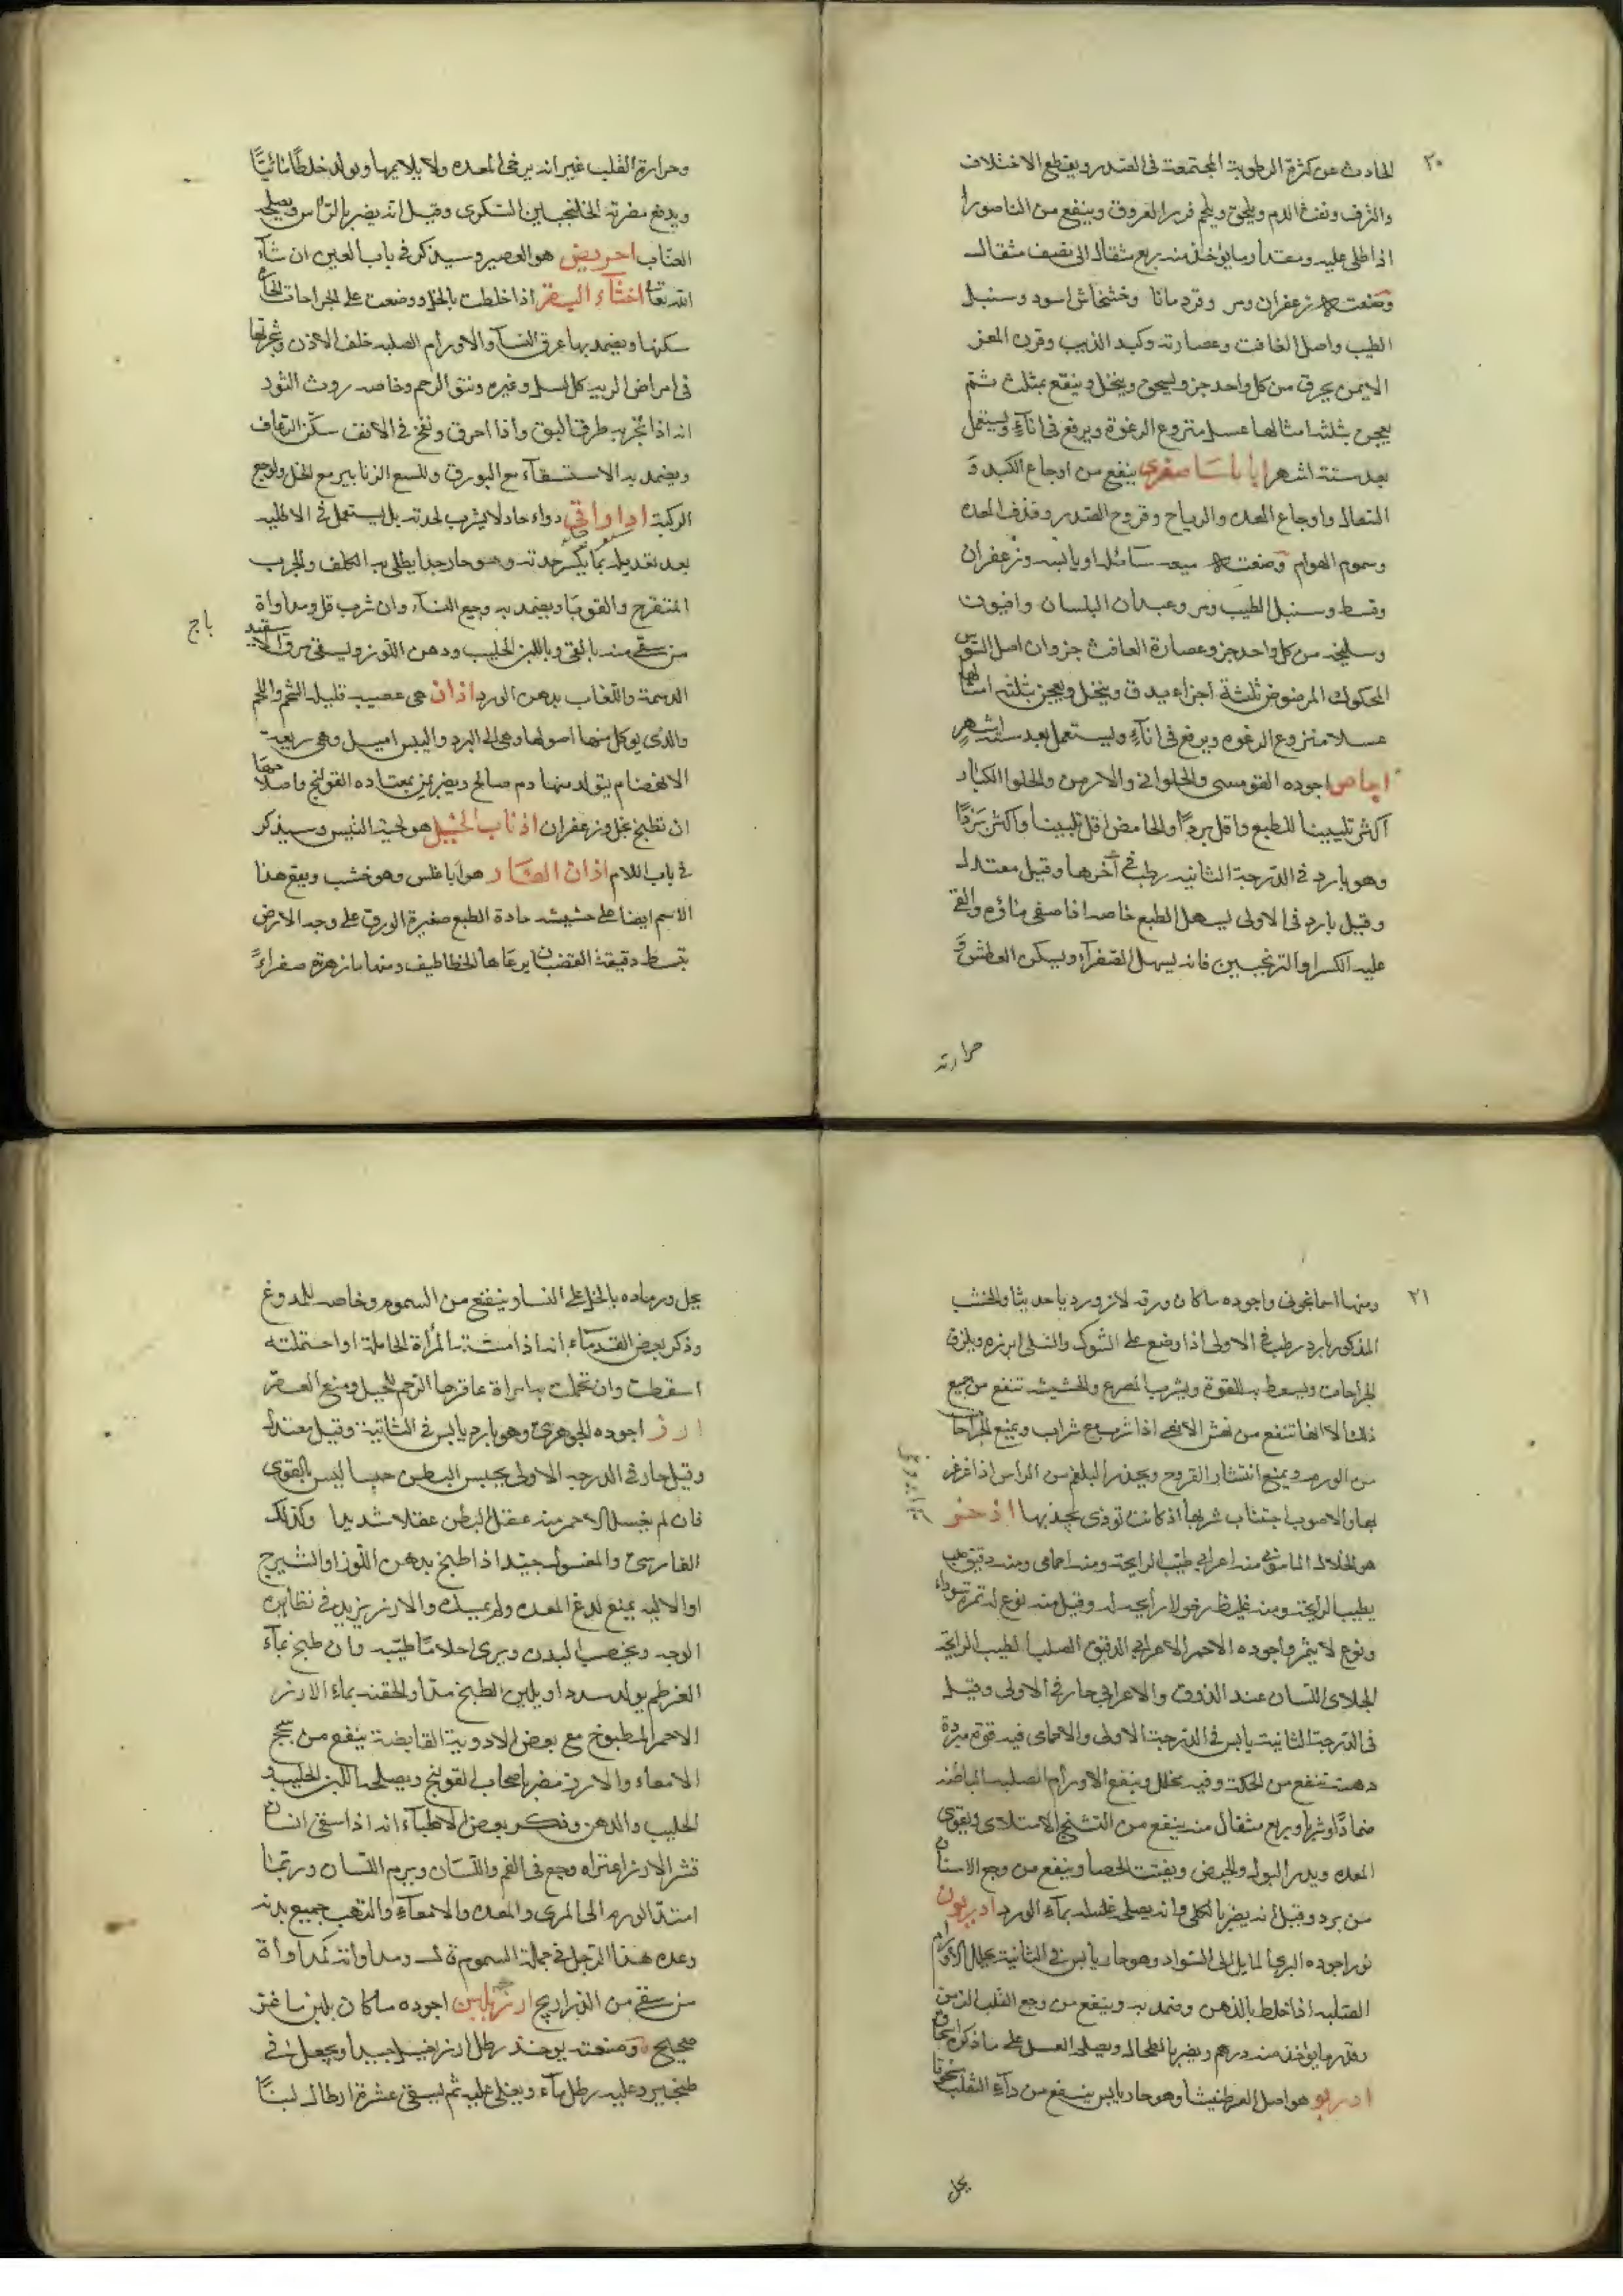 ٢٠
الحادث عن كثرة الرطوبة المجتمعة فى الصدر ويقطع الاختلاف
والنزف ونفث الدم ويلحق ويلحم فزر العروق وينفع من الناصور
اذا طلى عليه ومقدار مايؤخذ منه ربع مثقال الى نصف مثقال
وصنعته زعفران ومر وقردمانا وخشخاش اسود وسنبل
الطيب واصل الغافت وعصارته وكبد الذيب وقرن المعز
الايمن يحرق من كل واحد جزو يسحق وينخل وينقع بمثلث ثم
يعجن بثلثه امثالها عسل منزوع الرغوة ويرفع فى اناء ويستعمل
بعد ستة اشهر اياناسيا صغرى ينفع من اوجاع الكبد و
السعال واوجاع المعده والرياح وقروح الصدر وقذف المعده
وسموم الهوام وصنعته ميعه سائله او يابسه وزعفران
وقسط وسنبل الطيب ومر وعيدان البلسان وافيون
وسليخه من كل واحد جزو وعصارة الغافث جزوان اصل السوس
المحكوك المرضوض ثلثة اجزاء يدق وينخل ويعجن بثلثه امثالها
عسلا منزوع الرغوه ويرفع فى اناء ويستعمل بعد سته اشهر
اجاص اجوده القومسى والحلوانى والارمن والحلوا الكبار
اكثر تليينا للطبع واقل بردا والحامض اقل تليينا واكثر بردا
وهو بارد فى الدرجة الثانيه رطب فى آخرها وقيل معتدل
وقيل بارد فى الاولى يسهل الطبع خاصه اذا صفى ماؤه والقى
عليه السكر او الترنجبين فانه يسهل الصفرآء ويسكن العطش و
حرارته
وحرارة القلب غير انه يرخى المعده ولا يلايمها ويولد خلطا مائيا
ويدفع مضرته الخلنجبين السكرى وقيل انه يضر بالراس ويصلحه
العناب احريض هو العصفر وسيذكر فى باب العين ان شاء
الله تعالى اخثاء البقر اذا خلطت بالخل ووضعت على الجراحات الحارة
سكنها ويضمد بها عرق النسآ والاورام الصلبه خلف الاذن وتبخرتها
فى امراض الريه كالسل وغيره ونتق الرحم وخاصه روث الثور
انه اذا تبخر به طرد البق واذا احرق ونفخ فى الانف سكن الرعاف
ويضمد به الاستسقآء مع البورق وللسع الزنابير مع الخل ولوجع
الركبة اداراقى دواء حاد لا يشرب لحدته بل يستعمل فى الاطليه
بعد تعديله بما يكسر حدته وهو حار جدا يطلى به الكلف والجرب
المتقرح والقوبا ويضمد به وجع النسآ وان شرب قتل ومداواة
من سقى منه بالقى وباللبن الحليب ودهن اللوز ويسقى مرق
باج
الدسمة واللعاب بدهن الورد اذان هى عصيبه قليلة الشحم واللحم
والذى يوكل منها اصولها وهى الى البرد واليبس اميل وهى سريعة
الانهضام يتولد منها دم صالح ويضر بمن يعتاده القولنج واصلاحها
ان تطبخ بخل وزعفران اذناب الخيل هو لحية التيس وسيذكر
فى باب اللام اذان الفار هو اناغلس وهو خشب ويقع هذا
الاسم ايضا على حشيشه حادة الطبع صغيرة الورق على وجه الارض
تتبسط دقيقة القضبان يرعاها الخطاطيف ومنها ما زهرته صفراء
٢١
ومنها اسمانجونى واجوده ما كان ورقه لازورديا حديثا والخشب
المذكور بارد رطب فى الاولى اذا وضع على الشوك والسلى ابرزه ويلزق
الجراحات ويسعط به للقوة ويشرب للصرع والحشيشه تنفع من جميع
ذلك الا انها تنفع من نهش الافعى اذا شرب مع شراب ويمنع الجراحات
من الورم ويمنع انتشار القروح ويحدر البلغم من الراس اذا غرغر
بها والاصوب اجتناب شربها اذ كانت توذى بجذبها اذخر
هو الخلال الماسونى منه اعرابى طيب الرايحة ومنه اجامى ومنه دقيق صلب
يطيب الرايحة ومنه غليظ رخو لا رايحه له وقيل منه نوع له ثمرة سوداء
ونوع لا يثمر واجوده الاحمر الاعرابى الدقيق الصلب الطيب الرايحة
الجلادى اللسان عند الذوق والاعرابى حار فى الاولى وقيل
فى الدرجة الثانية يابس فى الدرجة الاولى والاجامى فيه قوة مبردة
دهنه تنفع من الحكة وفيه تحلل وينفع الاورام الصلبه الباطنه
ضمادا وشربا وربع مثقال منه ينفع من التشنج الامتلائى ويقوى
المعده ويدر البول والحيض ويفتت الحصا وينفع من وجع الاسنان
من برد وقيل انه يضر بالكلى وانه يصلحه غسله بمآء الورد ادريون
نور اجوده البرى المايل الى السواد وهو حار يابس فى الثانية يحلل الاورام
الصلبه اذا خلط بالدهن وضمد به وينفع من وجع القلب الزمن
وقدر ما يؤخذ منه درهم ويضر بالطحال ويصلحه العسل على ما ذكره اسحاق
ادربو هو اصل العرطنيثا وهو حار يابس ينفع من دآء الثعلب
بخل
بخل ورماده بالخل على النسا وينفع من السموم وخاصه للدوغ
وذكر بعض القدماء انه اذا مسته المرأة الحاملة او احتملته
اسقطت وان تحملت به امراة عاقر جا الرحم للحبل ومنع العقر
ارز اجوده الجوهرى وهو بارد يابس فى الثانية وقيل معتدل
وقيل حار فى الدرجه الاولى يحبس البطن حبسا ليس بالقوى
فان لم يغسل الاحمر منه عقل البطن عقلا شديدا وكذلك
الفارسى والمغسول جيدا اذا طبخ بدهن اللوز او الشيرج
او الاليه يمنع لدغ المعده ولم يمسك والارز يزيد فى نظارة
الوجه ويخصب البدن ويرى احلاما طيبه وان طبخ بمآء
القرطم يولد سددا ويلين الطبخ منه والحقنه بماء الارز
الاحمر المطبوخ مع بعض الادوية القابضة ينفع من سحج
الامعاء والارز مضر باصحاب القولنج ويصلحه اللبن الحليب و
الحليب والدهن وذكر بعض الاطباء انه اذا سقى انسان
قشر الارز اعتراه وجع فى الفم واللسان ويرم اللسان وربما
امتد الورم الى المرى والمعده والامعآء والتهب جميع بدنه
وعده هذا الرجل فى جملة السموم ق ومداواته كمداوأة
من سقى من الذراريح ارز بلبن اجوده ما كان بلبن ماعز
صحيح وصنعته يوخذ رطل ارز يغسل جيدا ويجعل فى
طنجير وعليه رطل مآء ويغلى عليه ثم يسقى عشرة ارطال لبنا